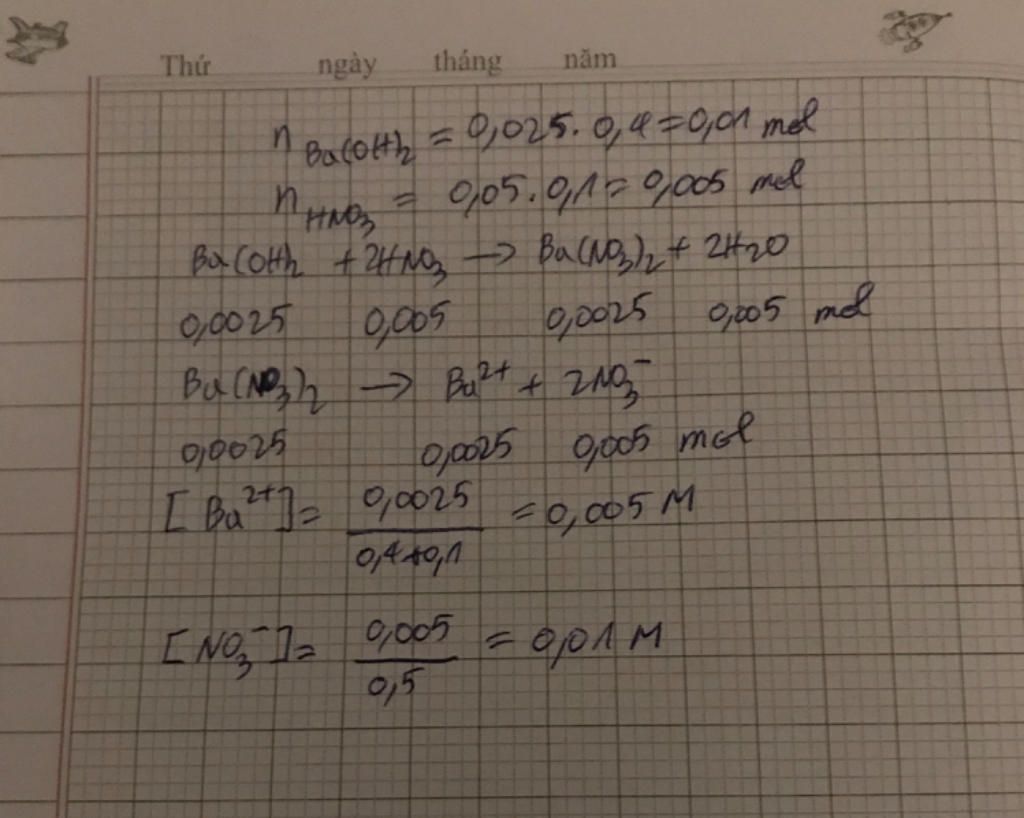 Thứ ngày tháng năm
n Ba(OH)2 = 0,025 . 0,4 = 0,01 mol
n HNO3 = 0,05 . 0,1 = 0,005 mol
Ba(OH)2 + 2HNO3 → Ba(NO3)2 + 2H2O
0,0025 0,005 0,0025 0,005 mol
Ba(NO3)2 → Ba2+ + 2NO3-
0,0025 0,0025 0,005 mol
[Ba2+] = 0,0025 / 0,4+0,1 = 0,005 M
[NO3-] = 0,005 / 0,5 = 0,01 M